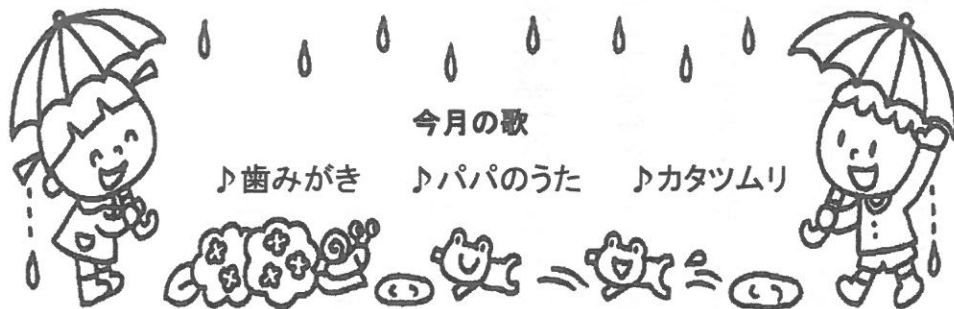 今月の歌
♪歯みがき ♪パパのうた ♪カタツムリ